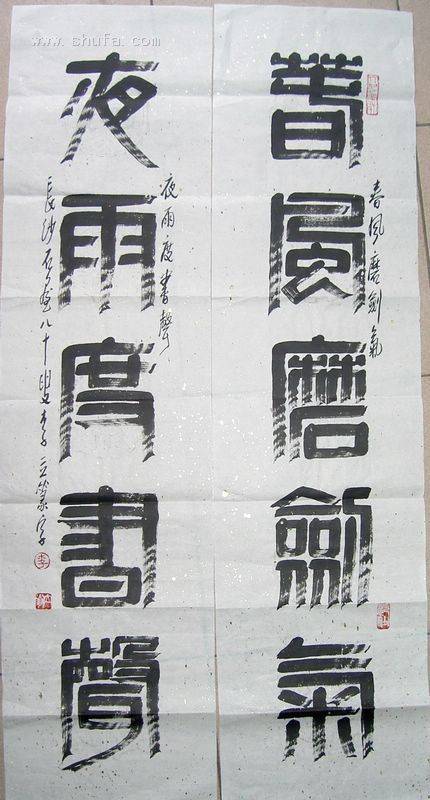 春風磨劍氣
春風磨劍氣
夜雨度書聲
夜雨度書聲
長沙石庵八十叟李立篆字
www.shufa.com